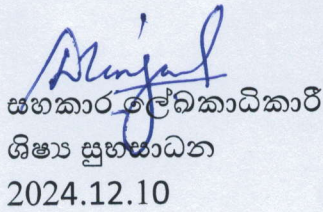 සහකාර ලේඛකාධිකාරී
ශිෂ්‍ය සුභසාධන
2024.12.10